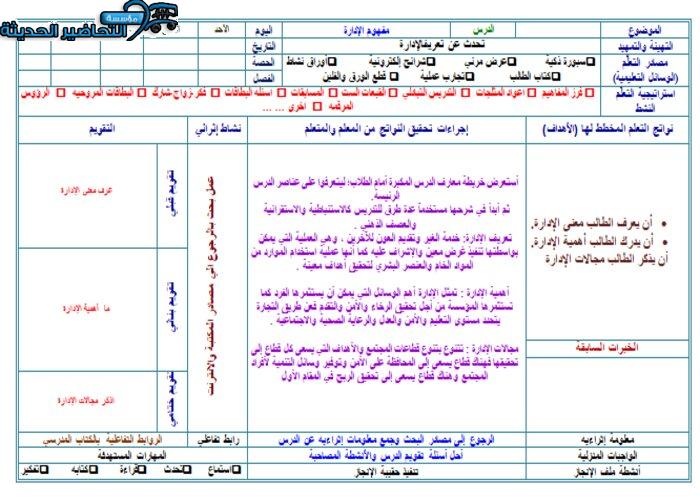 مؤسسة
التحاضير الحديثة
الموضوع
الدرس
مفهوم الإدارة
اليوم
الأحد
التهيئة والتمهيد
تحدث عن تعريفالإدارة
التاريخ
مصادر التعلم
(الوسائل التعليمية)
سبورة ذكية
عرض مرئي
شرائح إلكترونية
أوراق نشاط
كتاب الطالب
تجارب عملية
قطع الورق والفلين
الحصة
الفصل
استراتيجية التعلم
النشط
فرز المفاهيم
اعواد المثلجات
التدريس التبادلي
القبعات الست
المسابقات
اسئله البطاقات
فكر-زواج-شارك
البطاقات المروحيه
الرؤوس
المرقمه
اخرى ... ...
نواتج التعلم المخطط لها (الأهداف)
إجراءات تحقيق النواتج من المعلم والمتعلم
نشاط إثرائي
التقويم
• أن يعرف الطالب معنى الإدارة.
• أن يدرك الطالب أهمية الإدارة.
أن يذكر الطالب مجالات الإدارة
الخبرات السابقة
أستعرض خريطة معارف الدرس المكبرة أمام الطلاب؛ ليتعرفوا على عناصر الدرس
الرئيسة.
ثم أبدأ في شرحها مستخدماً عدة طرق للتدريس كالاستنباطية والاستقرائية
والعصف الذهني .
تعريف الإدارة: خدمة الغير وتقديم العون للآخرين ، وهي العملية التي يمكن
بواسطتها تنفيذ غرض معين والإشراف عليه كما أنها عملية استخدام الموارد من
المواد الخام والعنصر البشري لتحقيق أهداف معينة .
أهمية الإدارة : تمثل الإدارة أهم الوسائل التي يمكن أن يستثمرها الفرد كما
تستثمرها المؤسسة من أجل تحقيق الرخاء والأمن والتقدم فعن طريق التجارة
يتحدد مستوى التعليم والأمن والعدل والرعاية الصحية والاجتماعية .
مجالات الإدارة : تتنوع بتنوع قطاعات المجتمع والأهداف التي يسعى كل قطاع إلى
تحقيقها فهناك قطاع يسعى إلى المحافظة على الأمن وتوفير وسائل التنمية لأفراد
المجتمع وهناك قطاع يسعى إلى تحقيق الربح في المقام الأول
عمل بحث بالرجوع الي مصادر المكتبة والانترنت
تقويم قبلي
عرف معنى الإدارة
تقويم بنائي
ما أهمية الإدارة
تقويم ختامي
اذكر مجالات الإدارة
معلومة إثرائيه
الرجوع إلى مصادر البحث وجمع معلومات إثراءيه عن الدرس
رابط تفاعلي
الروابط التفاعلية بالكتاب المدرسي
الواجبات المنزلية
أحل أسئلة تقويم الدرس والأنشطة المصاحبة
المهارات المستهدفة
أنشطة ملف الإنجاز
تنفيذ حقيبة الإنجاز
استماع
تحدث
قراءة
كتابه
تفكير